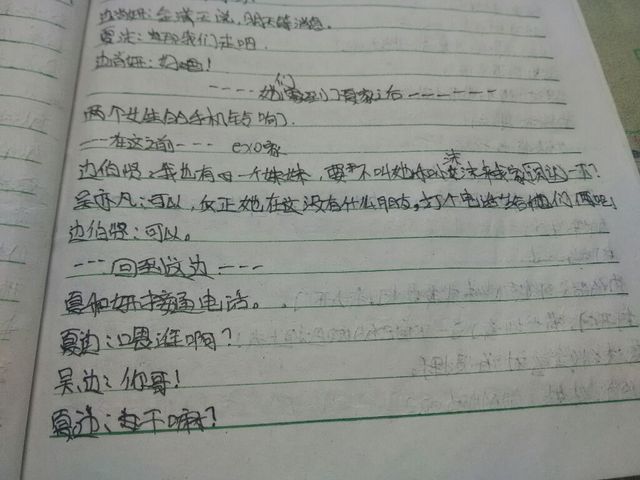 边尚妍:金满玉说,明天等消息。
夏沫:好那我们走吧。
边尚妍:好吧!
----她们到门夏家之后------
两个女生的手机铃响了.
---在这之前--- exo家
边伯贤:我也有一个妹妹,要不叫她和沫来我家玩一下?
吴亦凡:可以,反正她在这没有什么朋友,打个电话给她们两吧!
边伯贤:可以。
---回到这边----
夏和妍接通电话。
夏边:嗯谁啊?
吴.边:你哥!
夏边:干嘛?